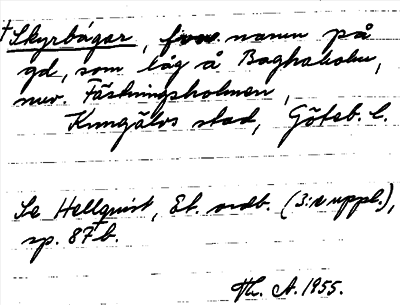 † Skyrbágar, namn på
gd, som låg å Baghaholm,
nuv. Fästningsholmen,
Kungälvs stad, Göteb. l.
Se Hellquist, Et. ordb. (3:e uppl.),
sp. 87 b.
A. 1955.